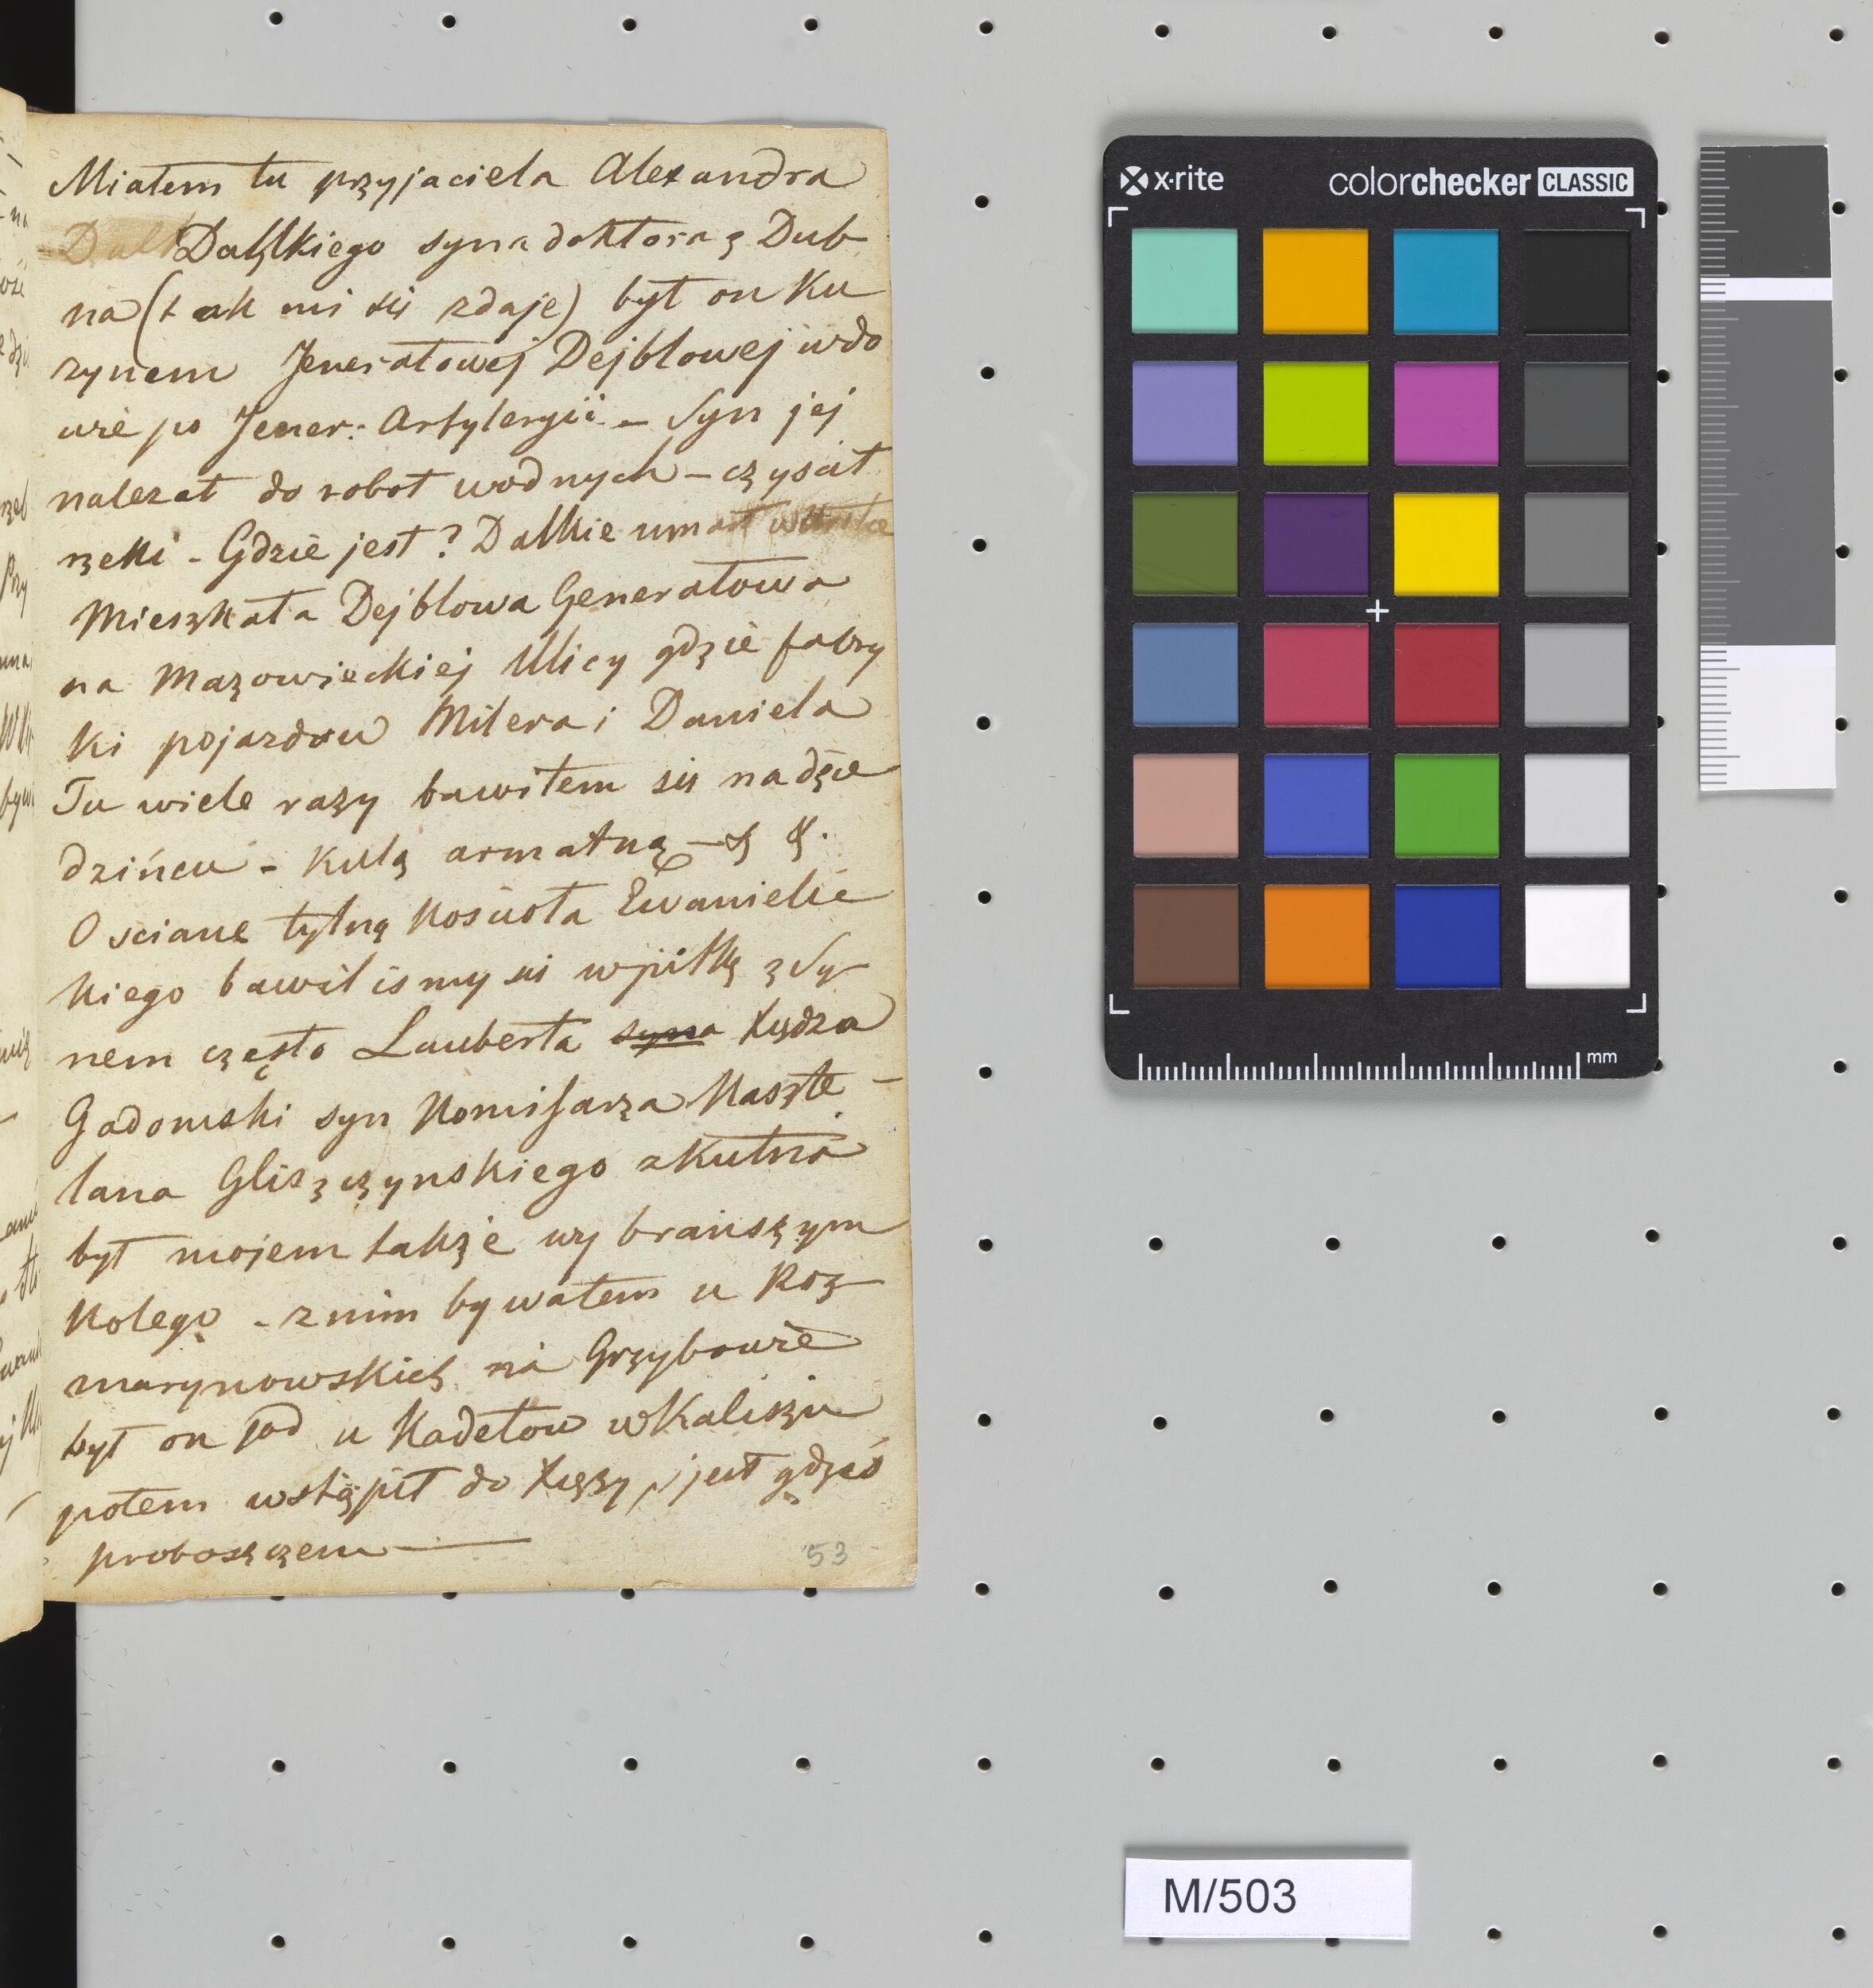 Miałem tu przyjaciela Alexandra
Dalkiego syna doktora z Dub
na (tak mi się zdaje) był on Ku
zynem Jenerałowej Dejblowej wdo
wie po Jener: Artyleryii – Syn jej
należał do robot wodnych – czyścił
rzeki – Gdzie jest? Dalkie umarł
Mieszkała Dejblowa Generałowa
na Mazowieckiej Ulicy gdzie fabry
ki pojazdow Milera i Daniela
Tu wiele razy bawiłem się na dzie
dzińcu – kulą armatną – & &.
O sciane tylną Kościoła Ewanielic
kiego bawilismy się w piłkę z Sy
nem często Lauberta syna Xiędza
Gadomski syn Komisarza Kaszte –
lana Gliszczynskiego z Kutna
był mojem także wybrańszym
Kolegą – z nim bywałem u Roz
marynowskich na Grzybowie
był on pod u Kadetow w Kaliszu
potem wstąpił do Xięży, i jest gdzieś
proboszczem —
53
x-rite colorchecker CLASSIC
mm
M/503